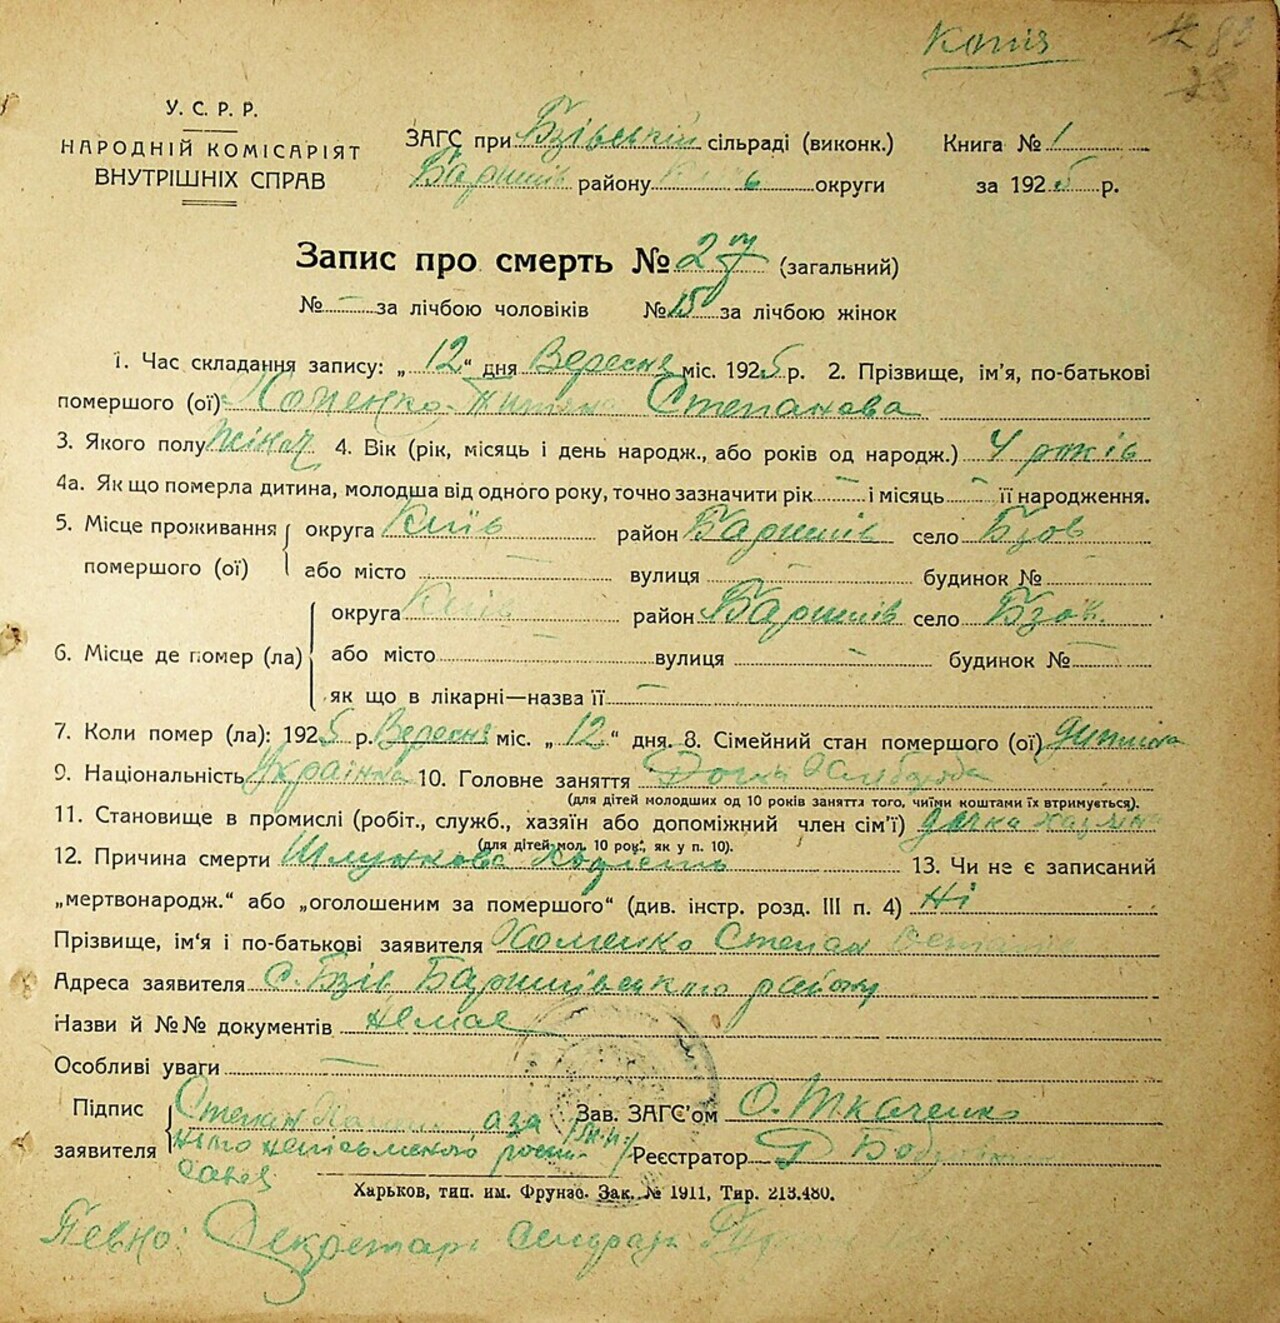 Копія
У. С. Р. Р.
НАРОДНІЙ КОМІСАРІЯТ
ВНУТРІШНІХ СПРАВ
ЗАГС при Бзівській сільраді (виконк.)
Баришів району округи
Книга № 1
за 1925 р.
Запис про смерть № 27 (загальний)
№ — за лічбою чоловіків № 15 за лічбою жінок
1. Час складання запису: „12“ дня Вересня міс. 1925 р. 2. Прізвище, ім’я, по-батькові
помершого (ої) Хоменко Степанова
3. Якого полу жіноч 4. Вік (рік, місяць і день народж., або років од народж.) 4 років
4а. Як що померла дитина, молодша від одного року, точно зазначити рік — і місяць — її народження.
5. Місце проживання помершого (ої) округа Київ район Баришів село Бзов
або місто — вулиця — будинок № —
6. Місце де помер (ла) округа Київ район Баришів село Бзов
або місто — вулиця — будинок № —
як що в лікарні—назва її —
7. Коли помер (ла): 1925 р. Вересня міс. „12“ дня. 8. Сімейний стан помершого (ої) дитина
9. Національність Українка 10. Головне заняття Дочка Хлібороба
(для дітей молодших од 10 років заняття того, чиїми коштами їх втримується).
11. Становище в промислі (робіт., служб., хазяїн або допоміжний член сім’ї) дочка хазяїна
(для дітей мол. 10 рок., як у п. 10).
12. Причина смерти Шлункова 13. Чи не є записаний
„мертвонародж.“ або „оголошеним за помершого“ (див. інстр. розд. III п. 4) Ні
Прізвище, ім‘я і по-батькові заявителя Хоменко Степан
Адреса заявителя С. Бзів Баришівського району
Назви й №№ документів немає
Особливі уваги —
Підпис заявителя Степан а за
його неписьменого
Зав. ЗАГС’ом О. Ткаченко
Реєстратор
Харьков, тип. им. Фрунзе. Зак. № 1911, Тир. 213.480.
Певно: Секретарь сельради